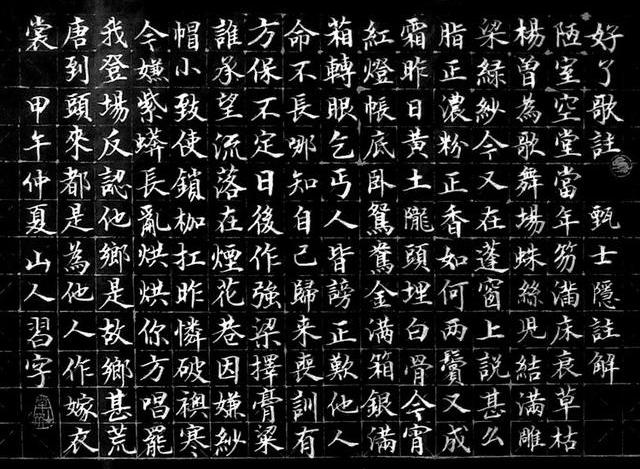 好了歌註 甄士隱註解
陋室空堂當年笏滿床衰草枯
楊曾為歌舞場蛛絲兒結滿雕
梁綠紗今又在蓬窗上說甚么
脂正濃粉正香如何兩鬢又成
霜昨日黃土隴頭埋白骨今宵
紅燈帳底臥鴛鴦金滿箱銀滿
箱轉眼乞丐人皆謗正歎他人
命不長哪知自己歸來喪訓有
方保不定日後作強梁擇膏粱
誰承望流落在煙花巷因嫌紗
帽小致使鎖枷扛昨憐破襖寒
今嫌紫蟒長亂烘烘你方唱罷
我登場反認他鄉是故鄉甚荒
唐到頭來都是為他人作嫁衣
裳 甲午仲夏山人習字